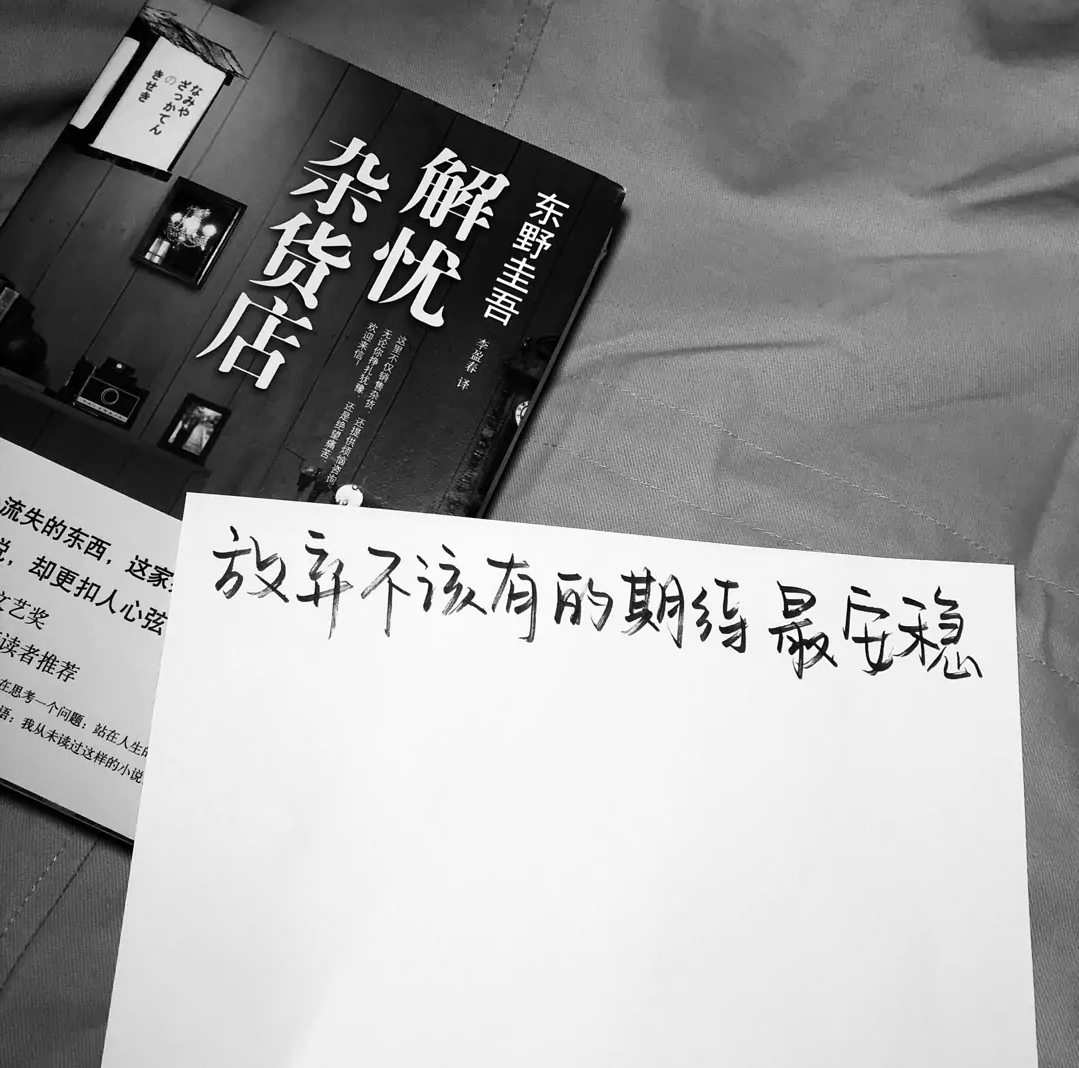 なみや
ざっかてん
の
きせき
解忧
杂货店
东野圭吾
李盈春 译
这里不仅销售杂货，还提供烦恼咨询。
无论你挣扎犹豫，还是绝望痛苦，
欢迎来信！
流失的东西，这家
说，却更扣人心弦
文艺奖
读者推荐
在思考一个问题：站在人生的
语：我从未读过这样的小说
放弃不该有的期待 最安稳